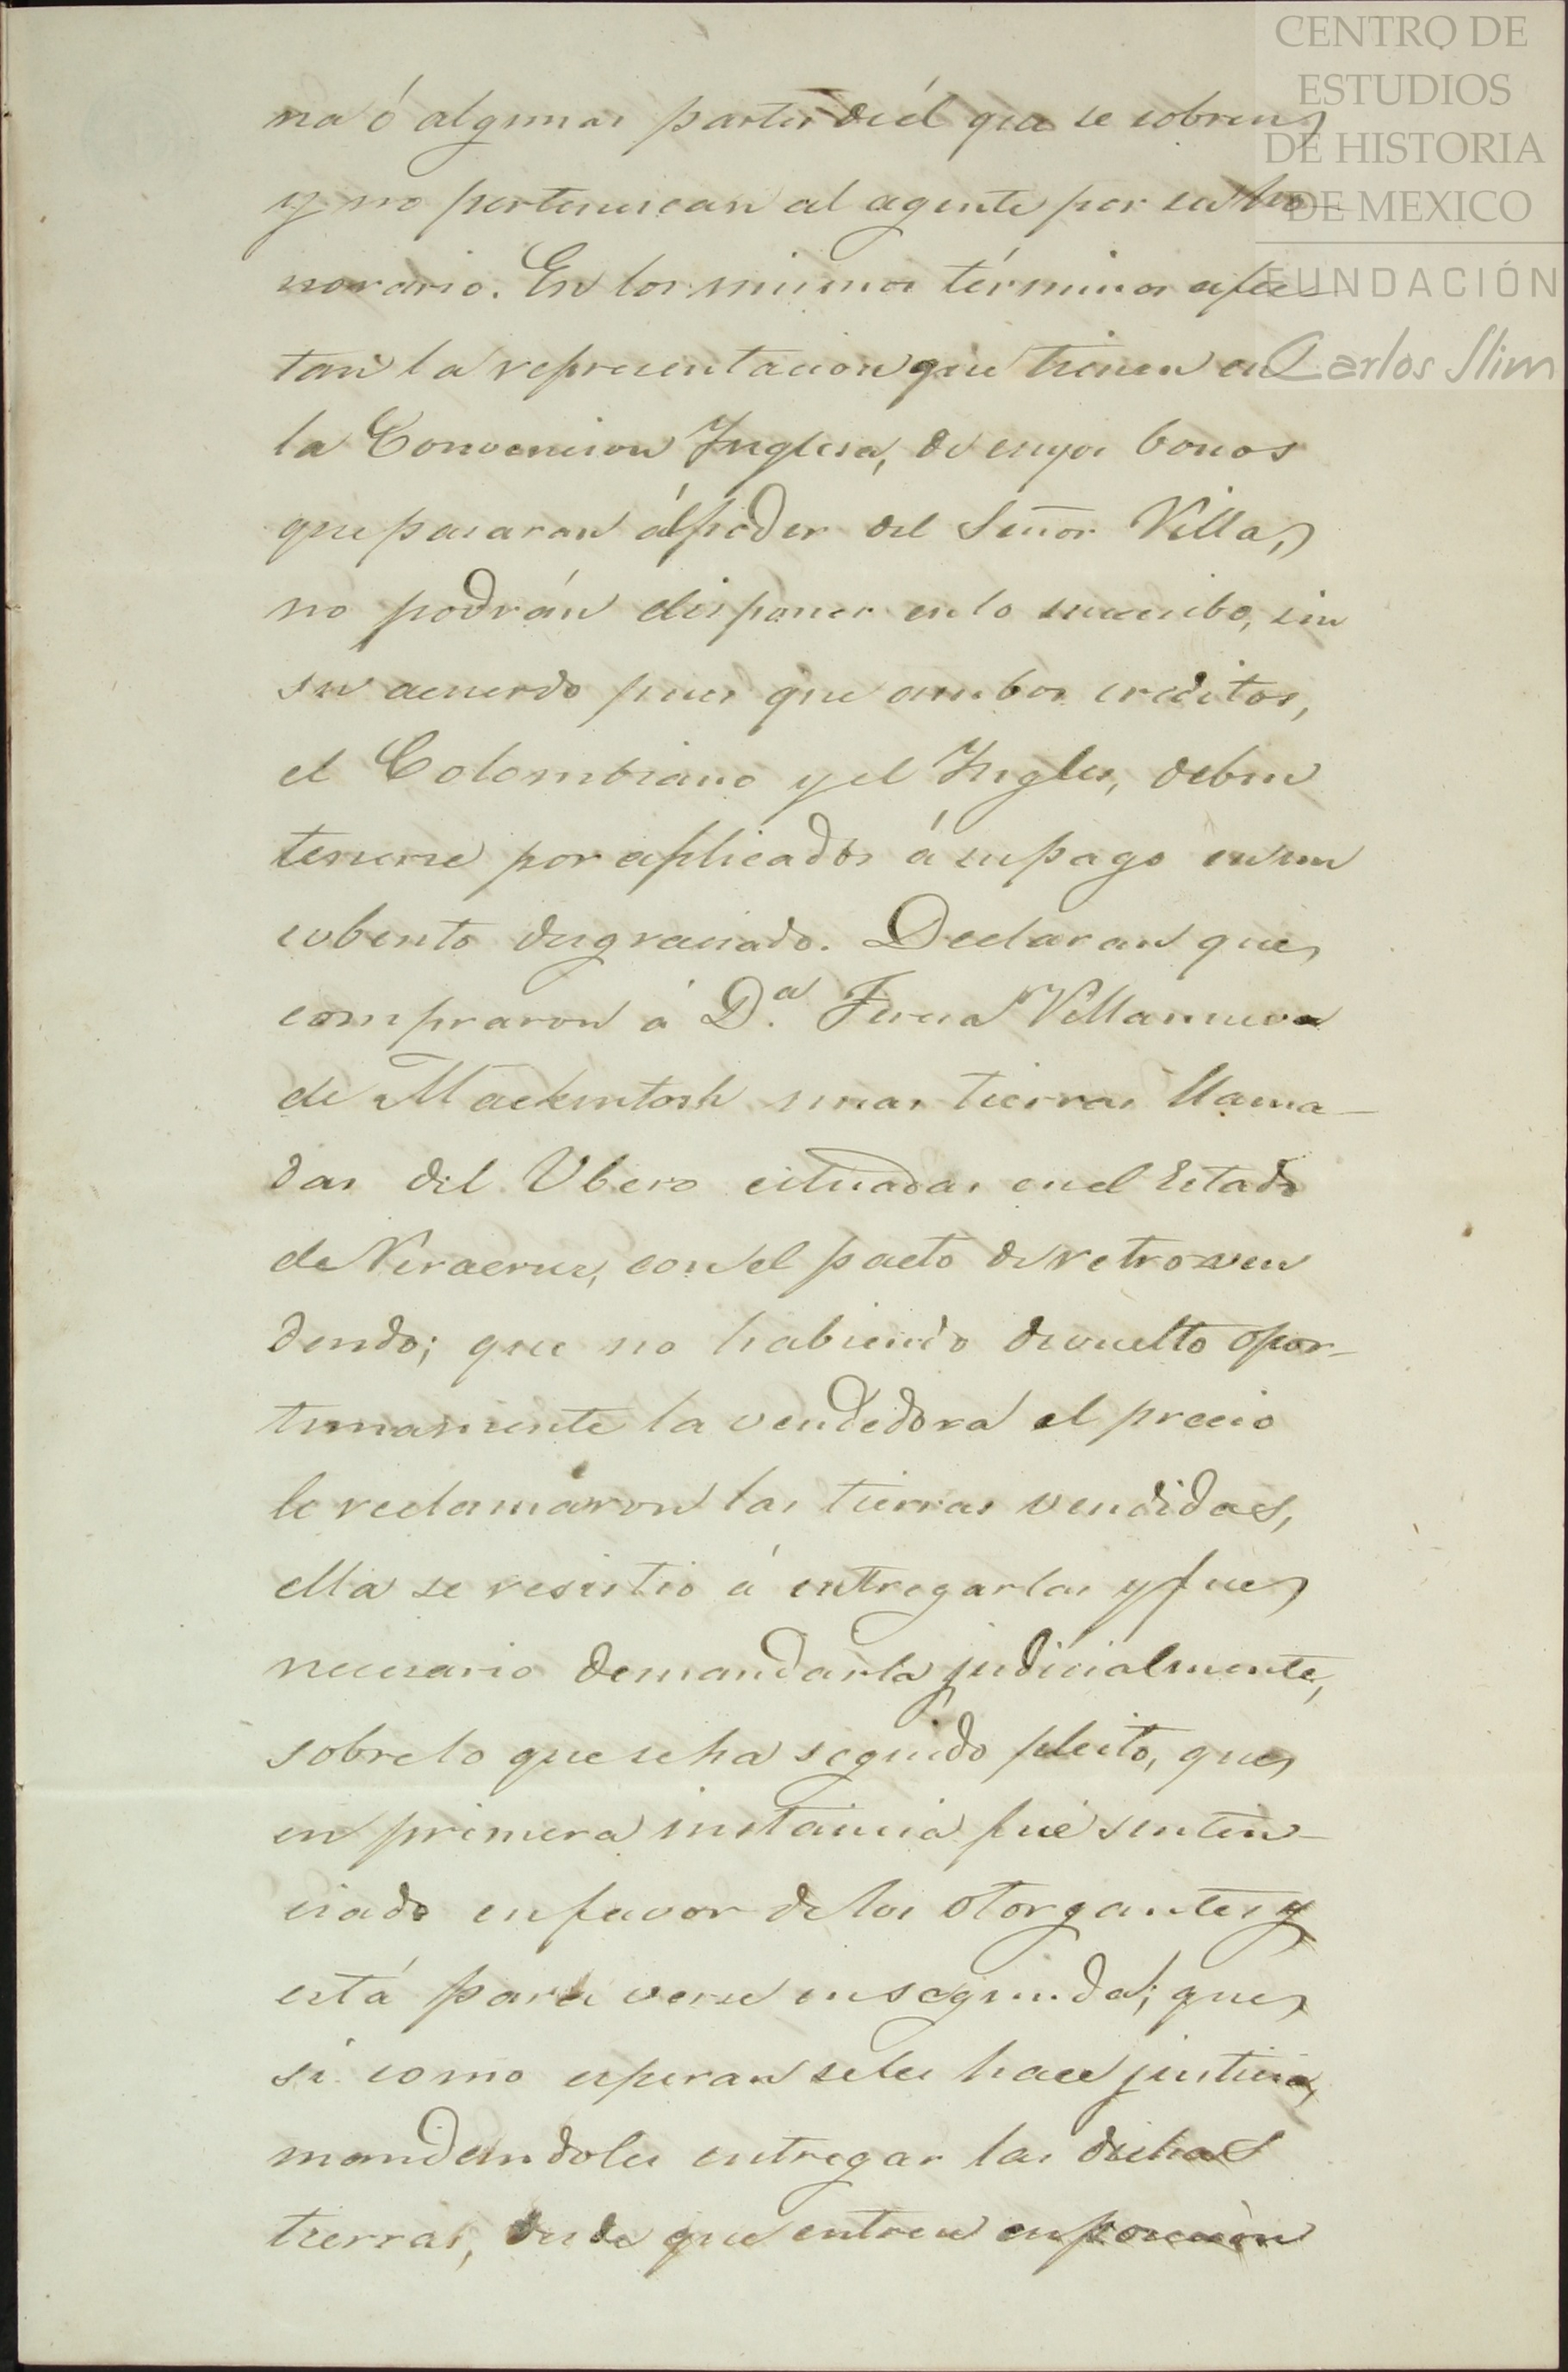 CENTRO DE
ESTUDIOS
DE HISTORIA
DE MEXICO
FUNDACIÓN
Carlos Slim
na ó algunas partes de él que se cobren
y no pertenescan al agente por su ho-
norario. En los mismos términos afec-
tan la representacion que tienen en
la Convencion Inglesa, de cuyos bonos
que pasaran al poder del Señor Villa,
no podrán disponer en lo sucecibo, sin
su acuerdo pues que ambos creditos,
el Colombiano y el Ingles, deben
tenerse por aplicados á su pago en un
evento desgraciado. Declaran que
compraron á D.ª Villanueva
de Mackintosh unas tierras llama-
das del Ubero cituadas en el Estado
de Veracruz, con el pacto de retroven
dendo; que no habiendo devuelto opor-
tunamente la vendedora el precio
le reclamaron las tierras vendidas,
ella se resistio á entregarlas y fue
necesario demandarla judicialmente,
sobre lo que se ha seguido pleito, que
en primera instancia fué senten-
ciado en favor de los otorgantes y
está para verse en segunda; que
si como esperan se les hace justicia,
mandandoles entregar las dichas
tierras, desde que entren en posecion